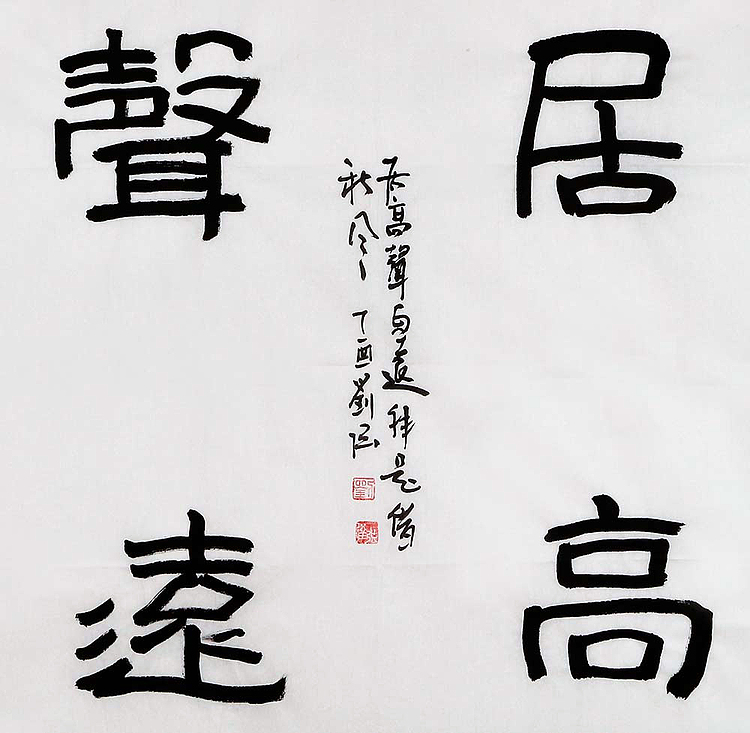 居高
聲遠
居高聲自遠非是借
秋風丁酉劉